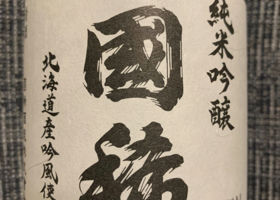 純米吟醸
國稀
北海道産吟風使